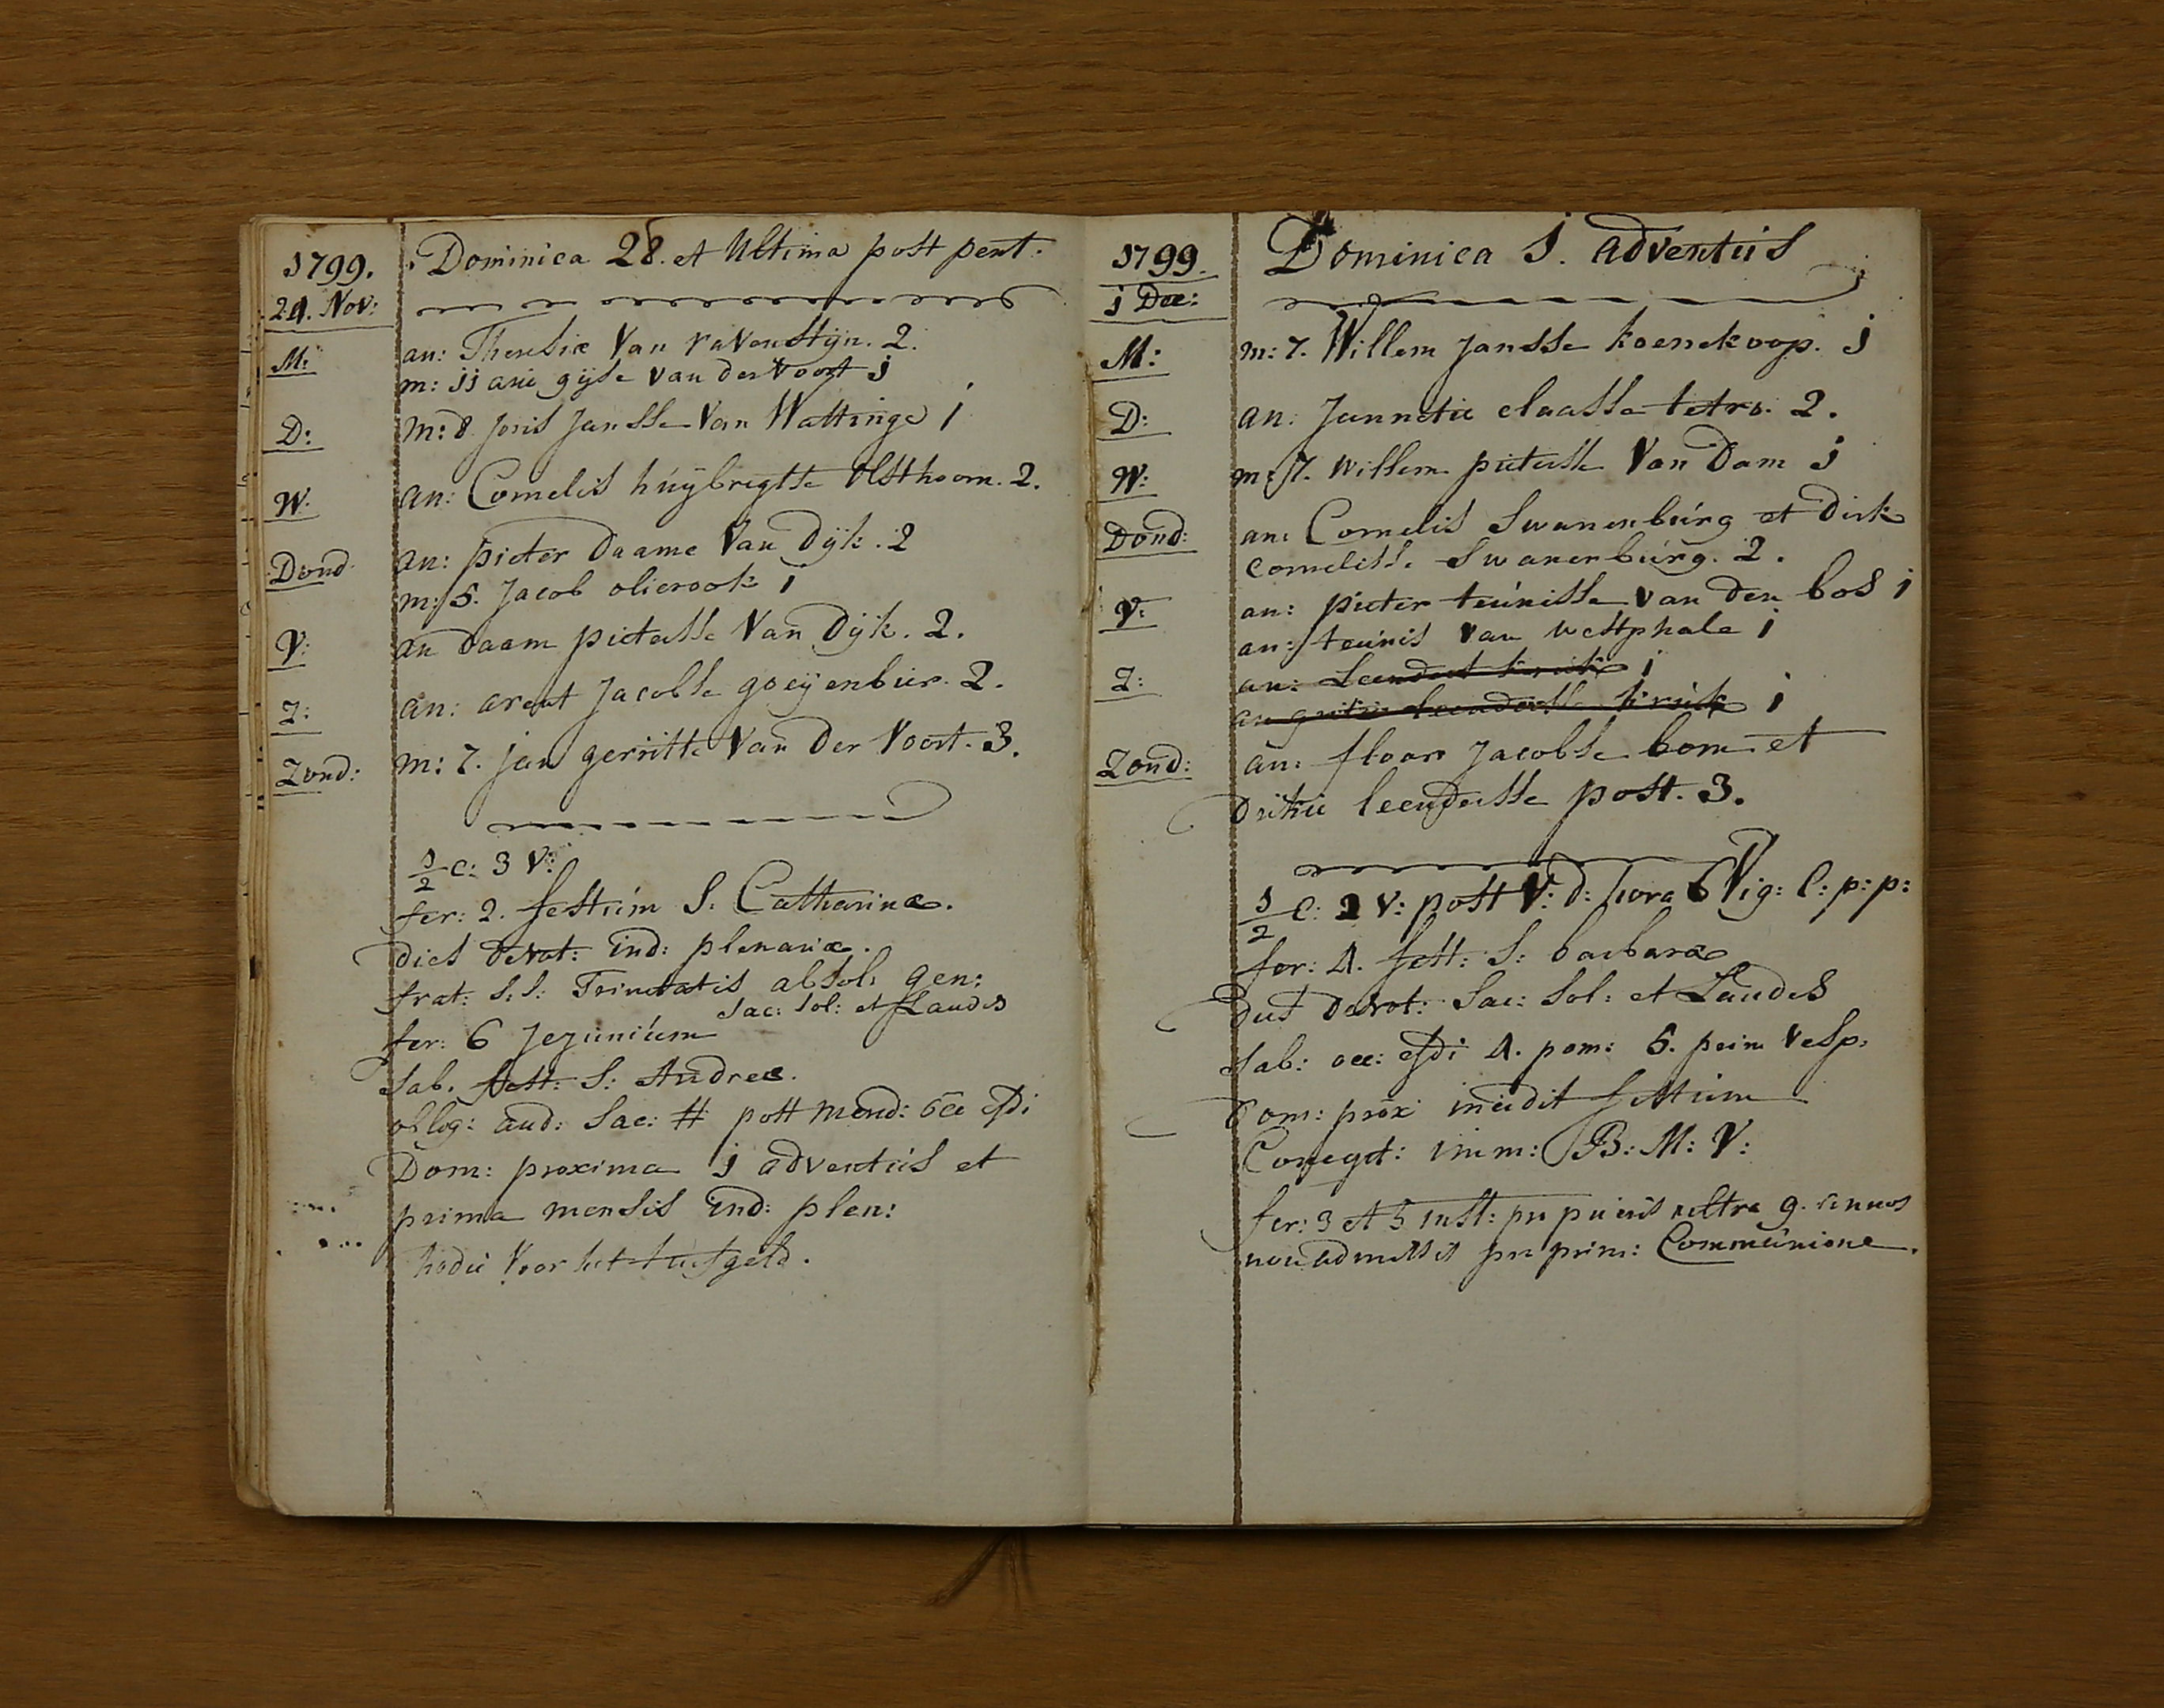 1799. Dominica 28. et Ultima post pent:
24. Nov:
M: an: Theresiæ Van ravenstijn. 2.
m: jj arie gijse van der voort j
D: m: 8 joris Jansse Van Wattinge j
W: an: Cornelis húÿbregtse Olsthoorn. 2.
Dond an: pieter Daame Van Dijk. 2
m: 5. Jacob olierook j
V: an Daam pieterse Van Dijk. 2.
Z: an: arent Jacobse goeÿenbier. 2.
Zond: m: 7. jan gerritse Van Der Voort. 3.
1/2 c: 3 V:
fer: 2. festúm S. Catharinæ.
dies devot: ind: plenariæ.
frat: S.S: Trinitatis absol: gen:
fer: 6 Jejuniúm Sac: Sol: et Laudes
Sab. fest: S: Andreæ.
oblig: aud: Sac: # post mend:
Dom: proxima j adventús et
prima mensis ind: plen:
hodie voor het
1799. Dominica j. adventús
j Dec:
M: m: 7. Willem Jansse koenekoop. j
D: an: Jannetie claasse 2.
W: m: 7. willem pieterse Van Dam j
Dond: an: Cornelis Swanenbúrg et Dirk
cornelisse Swanenbúrg. 2.
V: an: pieter teúnisse van den bos j
an: teúnis van westphale j
Z: an: Leendert krúk j
an grietie leenderse krúk j
Zond: an: floor Jacobse bom et
Dirkie leenderse post. 3.
1/2 c: 2 V: post V: d: hora 6 Vig: C: p: p:
fer: 4. fest: S: barbaræ
Dies devot: Sac: Sol: et Laudes
Sab: occ: 4. pom: 5. prim Vesp.
Dom: prox incidit festúm
Concept: imm: B: M: V:
fer: 3 et 5 inst: pro púeris ultra 9. annos
non admissis pro prim: Commúnione.